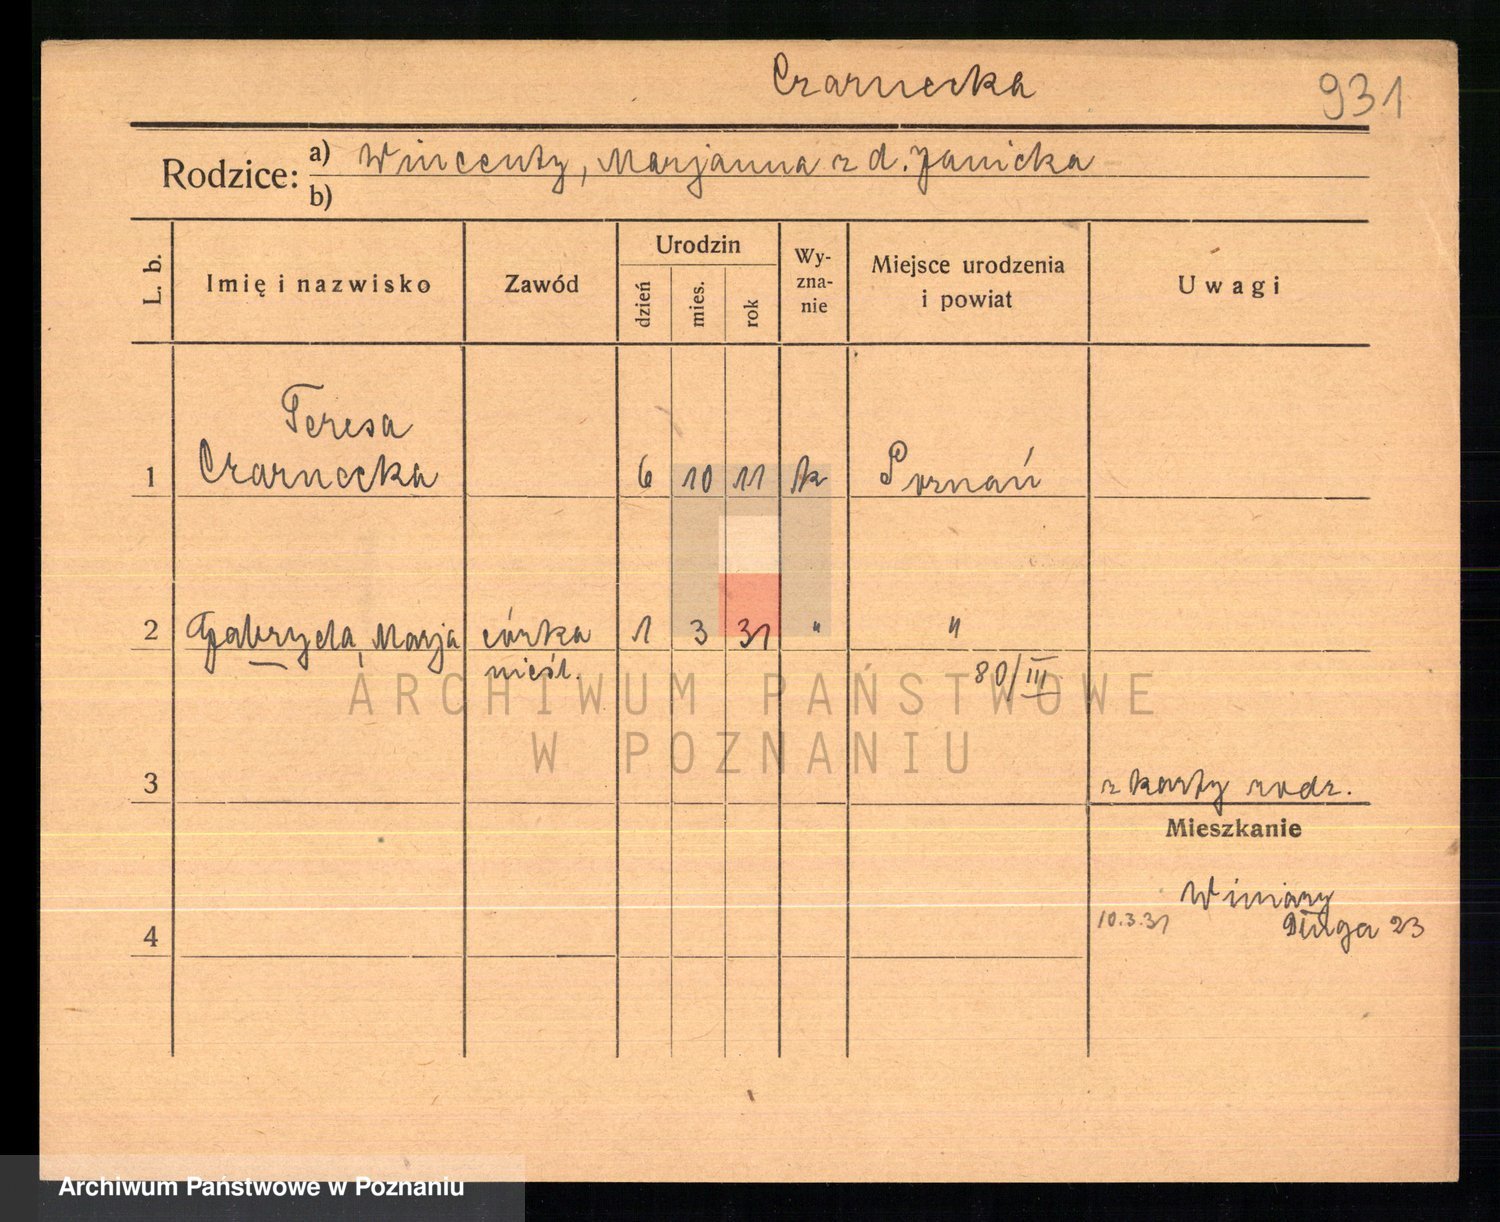 Czarnecka
931
Rodzice:
a) Wincenty, Marjanna z d. Janicka
b)
L. b.
Imię i nazwisko
Zawód
Urodzin
dzień
mies.
rok
Wy-
zna-
nie
Miejsce urodzenia
i powiat
Uwagi
Teresa
1 Czarnecka 6 10 11 rk Poznań
2 Gabryela, Marja córka 1 3 31 " "
nieśl. 80/III
ARCHIWUM PAŃSTWOWE
W POZNANIU
3 z karty rodz.
Mieszkanie
Winiary
10.3.31 Długa 23
4
Archiwum Państwowe w Poznaniu